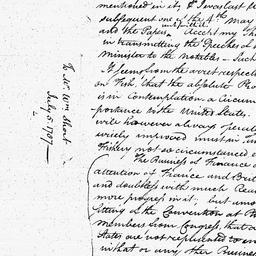 mentioned in it, & I was last
subsequent one of the 4th May
and the Papers Accept my Th
in transmitting the Speeches of
Minister to the Notables. Such
It seems from the arret respecti
on Fish, that the absolute Pro
is in contemplation a circum
portance to the United States.
will however always
improved must in
Fishery not so circumstanced
The Business of Finance
attention of France and Brit
and doubtless with much Rea
more progress in it. but
sitting of the Convention at P
members from Congress, that
States are not represented to en
in that or any other Business
To Mr. Wm Short
July 5. 1787